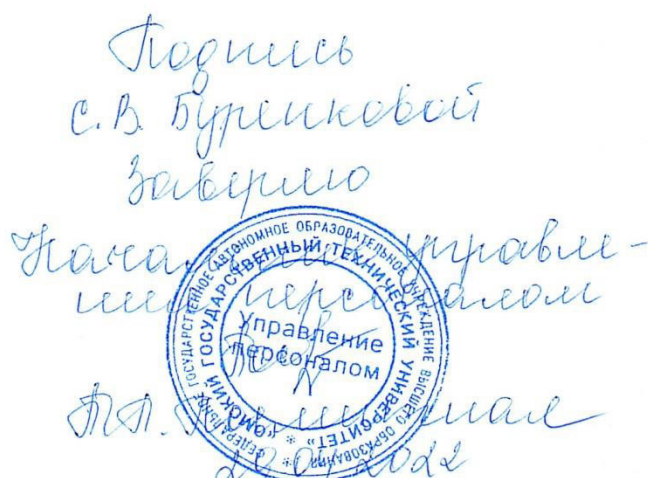 Подпись
С.В. Буренковой
Заверяю
Начальник управле-
ния персоналом
ФЕДЕРАЛЬНОЕ ГОСУДАРСТВЕННОЕ АВТОНОМНОЕ ОБРАЗОВАТЕЛЬНОЕ УЧРЕЖДЕНИЕ ВЫСШЕГО ОБРАЗОВАНИЯ
«ОМСКИЙ ГОСУДАРСТВЕННЫЙ ТЕХНИЧЕСКИЙ УНИВЕРСИТЕТ»
Управление
персоналом
2022